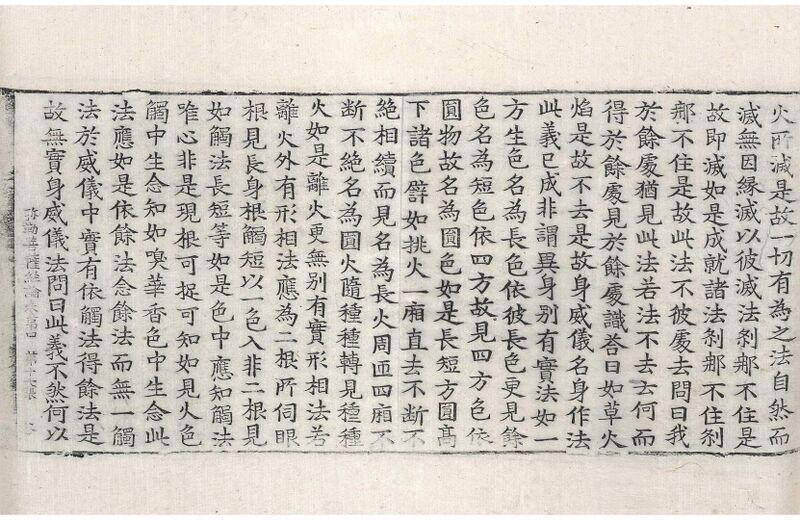 火所滅是故一切有為之法自然而
滅無因緣滅以彼滅法剎那不住是
故即滅如是成就諸法剎那不住剎
那不住是故此法不彼處去問曰我
於餘處猶見此法若法不去云何而
得於餘處見於餘處識荅曰如草火
焰是故不去是故身威儀名身作法
此義已成非謂異身别有實法如一
方生色名為長色依彼長色更見餘
色名為短色依四方故見四方色依
圓物故名為圓色如是長短方圓髙
下諸色譬如挑火一廂直去不断不
絶相續而見名為長火周匝四廂不
断不絶名為圓火隨種種轉見種種
火如是離火更無别有實形相法若
離火外有形相法應為二根所伺眼
根見長身根觸短以一色入非二根見
如觸法長短等如是色中應知觸法
唯心非是現根可捉可知如見火色
觸中生念知如嗅華香色中生念此
法應如是依餘法念餘法而無一觸
法於威儀中實有依觸法得餘法是
故無實身威儀法問曰此義不然何以